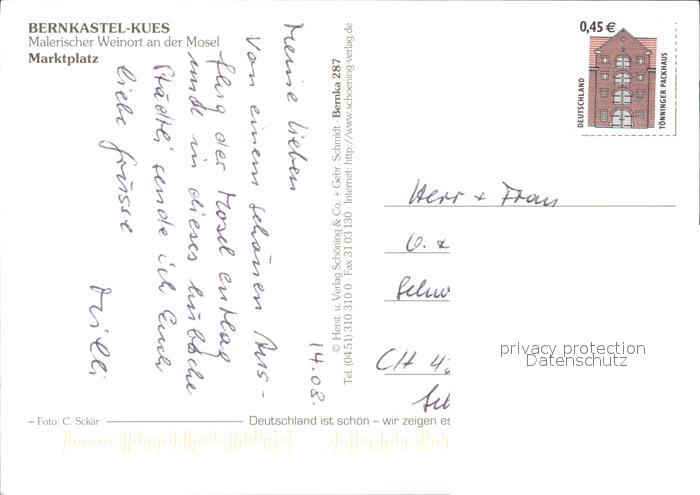 BERNKASTEL-KUES
Malerischer Weinort an der Mosel
Marktplatz
14.08.
Meine Lieben
Von einem schönen Aus-
flug der Mosel entlag
und in dieses hübsche
Städtli sende ich Euch
liebe Grüsse
Trilli
© Herst. u. Verlag Schöning & Co. + Gebr. Schmidt · Bernka 287
Tel. (04 51) 310 310 0 · Fax 31 03 130 · Internet: http://www.schoening-verlag.de
0,45 €
DEUTSCHLAND
TÖNNINGER PACKHAUS
Herr + Frau
CH 4
privacy protection
Datenschutz
– Foto: C. Sckär
Deutschland ist schön – wir zeigen es